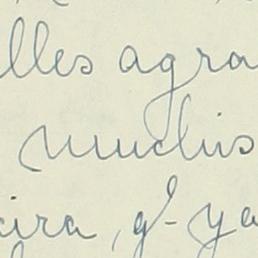 lles agra
muchis
cira, q- ya